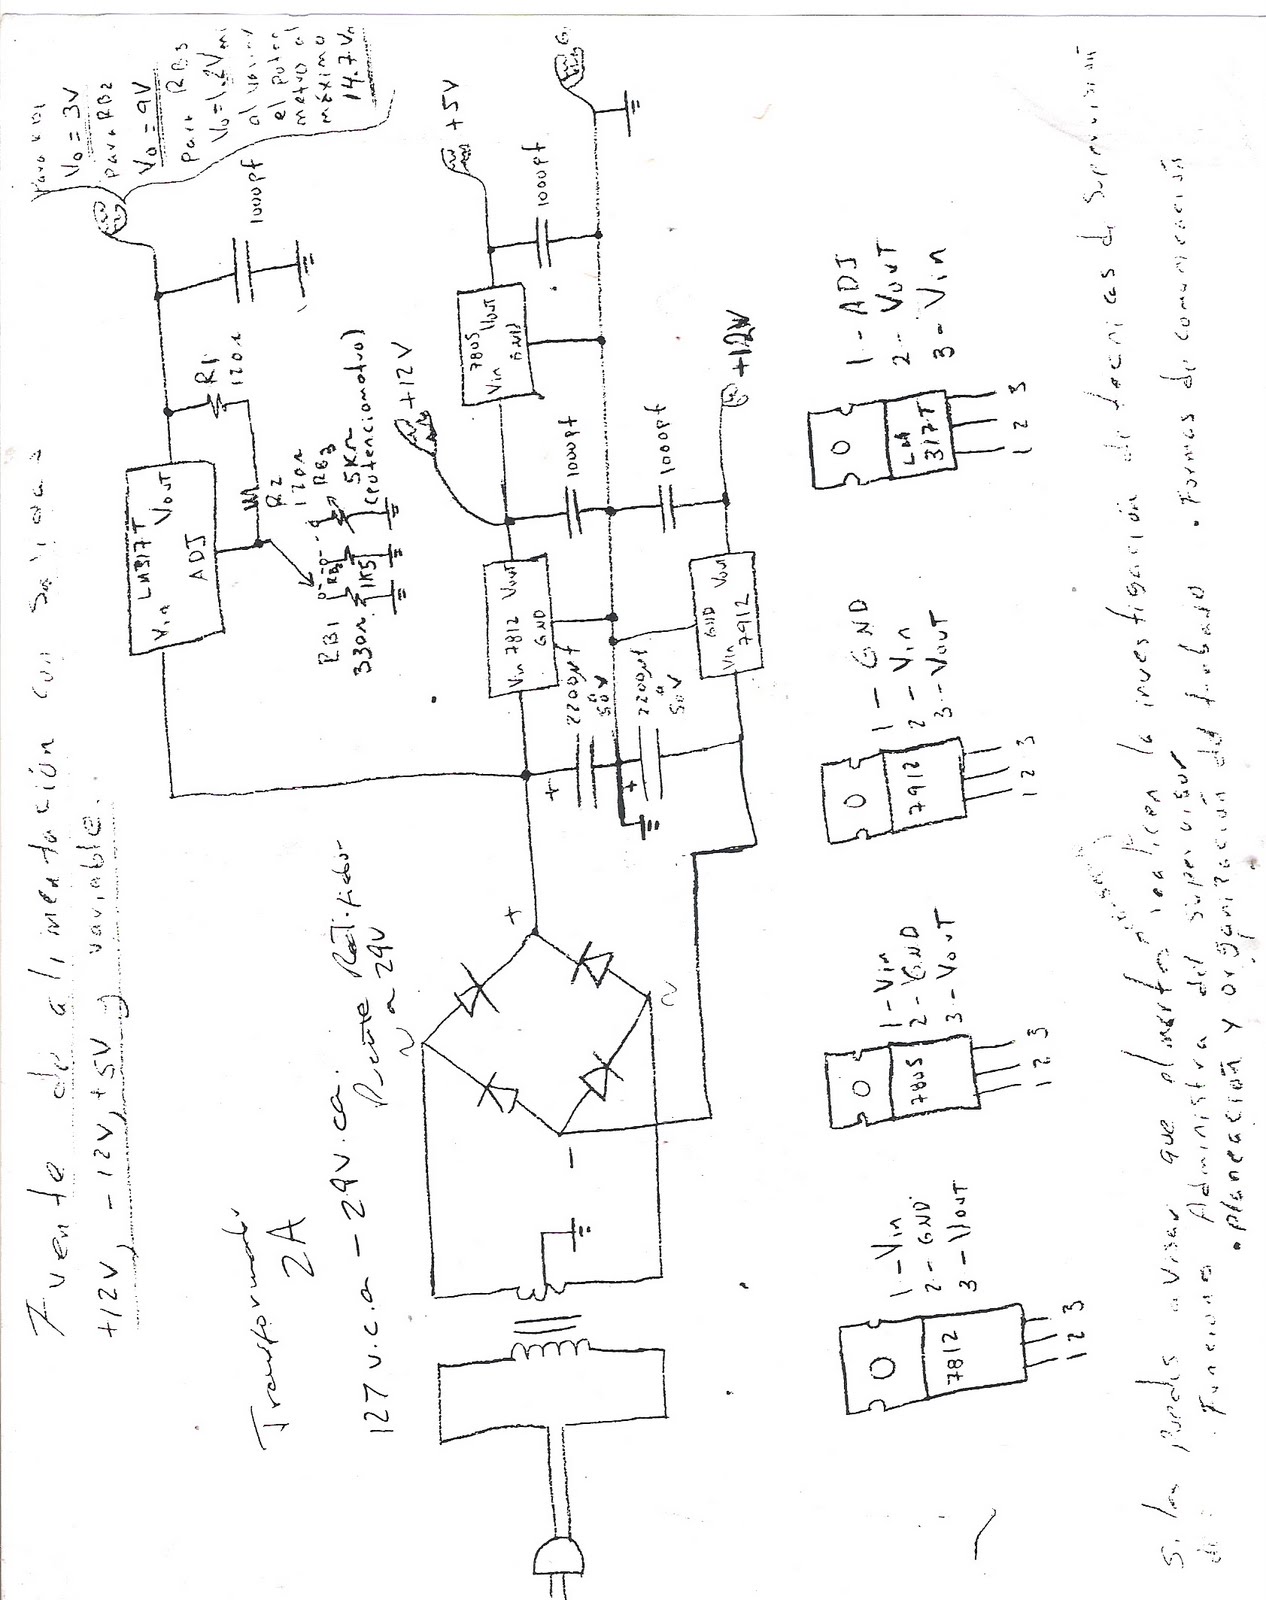 Fuente de alimentación con salida a
+12V, -12V, +5V y variable.
Transformador
2A
127 v.c.a - 29v.ca.
Puente Rectificador
a 29V
~
+
~
-
LM317T
Vin
Vout
ADJ
R1
120Ω
R2
120Ω
RB1
330Ω
RB2
1K5
RB3
5KΩ
(potenciometro)
1000pf
para RB1
Vo = 3V
para RB2
Vo = 9V
para RB3
Vo = 1.2V
el poten
metro al
máximo
14.7V
Vin 7812 Vout
GND
+12V
7805
Vin Vout
GND
+5V
1000pf
1000pf
1000pf
+
2200μf
a
50V
+
2200μf
a
50V
GND Vout
Vin 7912
+12V
7812
1 2 3
1 - Vin
2 - GND
3 - Vout
7805
1 2 3
1 - Vin
2 - GND
3 - Vout
7912
1 2 3
1 - GND
2 - Vin
3 - Vout
LM
317T
1 2 3
1 - ADJ
2 - Vout
3 - Vin
que el martes realicen la investigación de tecnicas de Supervisión
de: Funciones Administra del supervisor
• planeación y organización del trabajo • Formas de comunicación